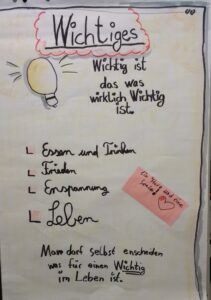 Wichtiges
Wichtig ist
das was
wirklich Wichtig
ist.
Essen und Trinken
Frieden
Enspannung
Leben
Man darf selbst enscheiden
was für einen Wichtig
im Leben ist.